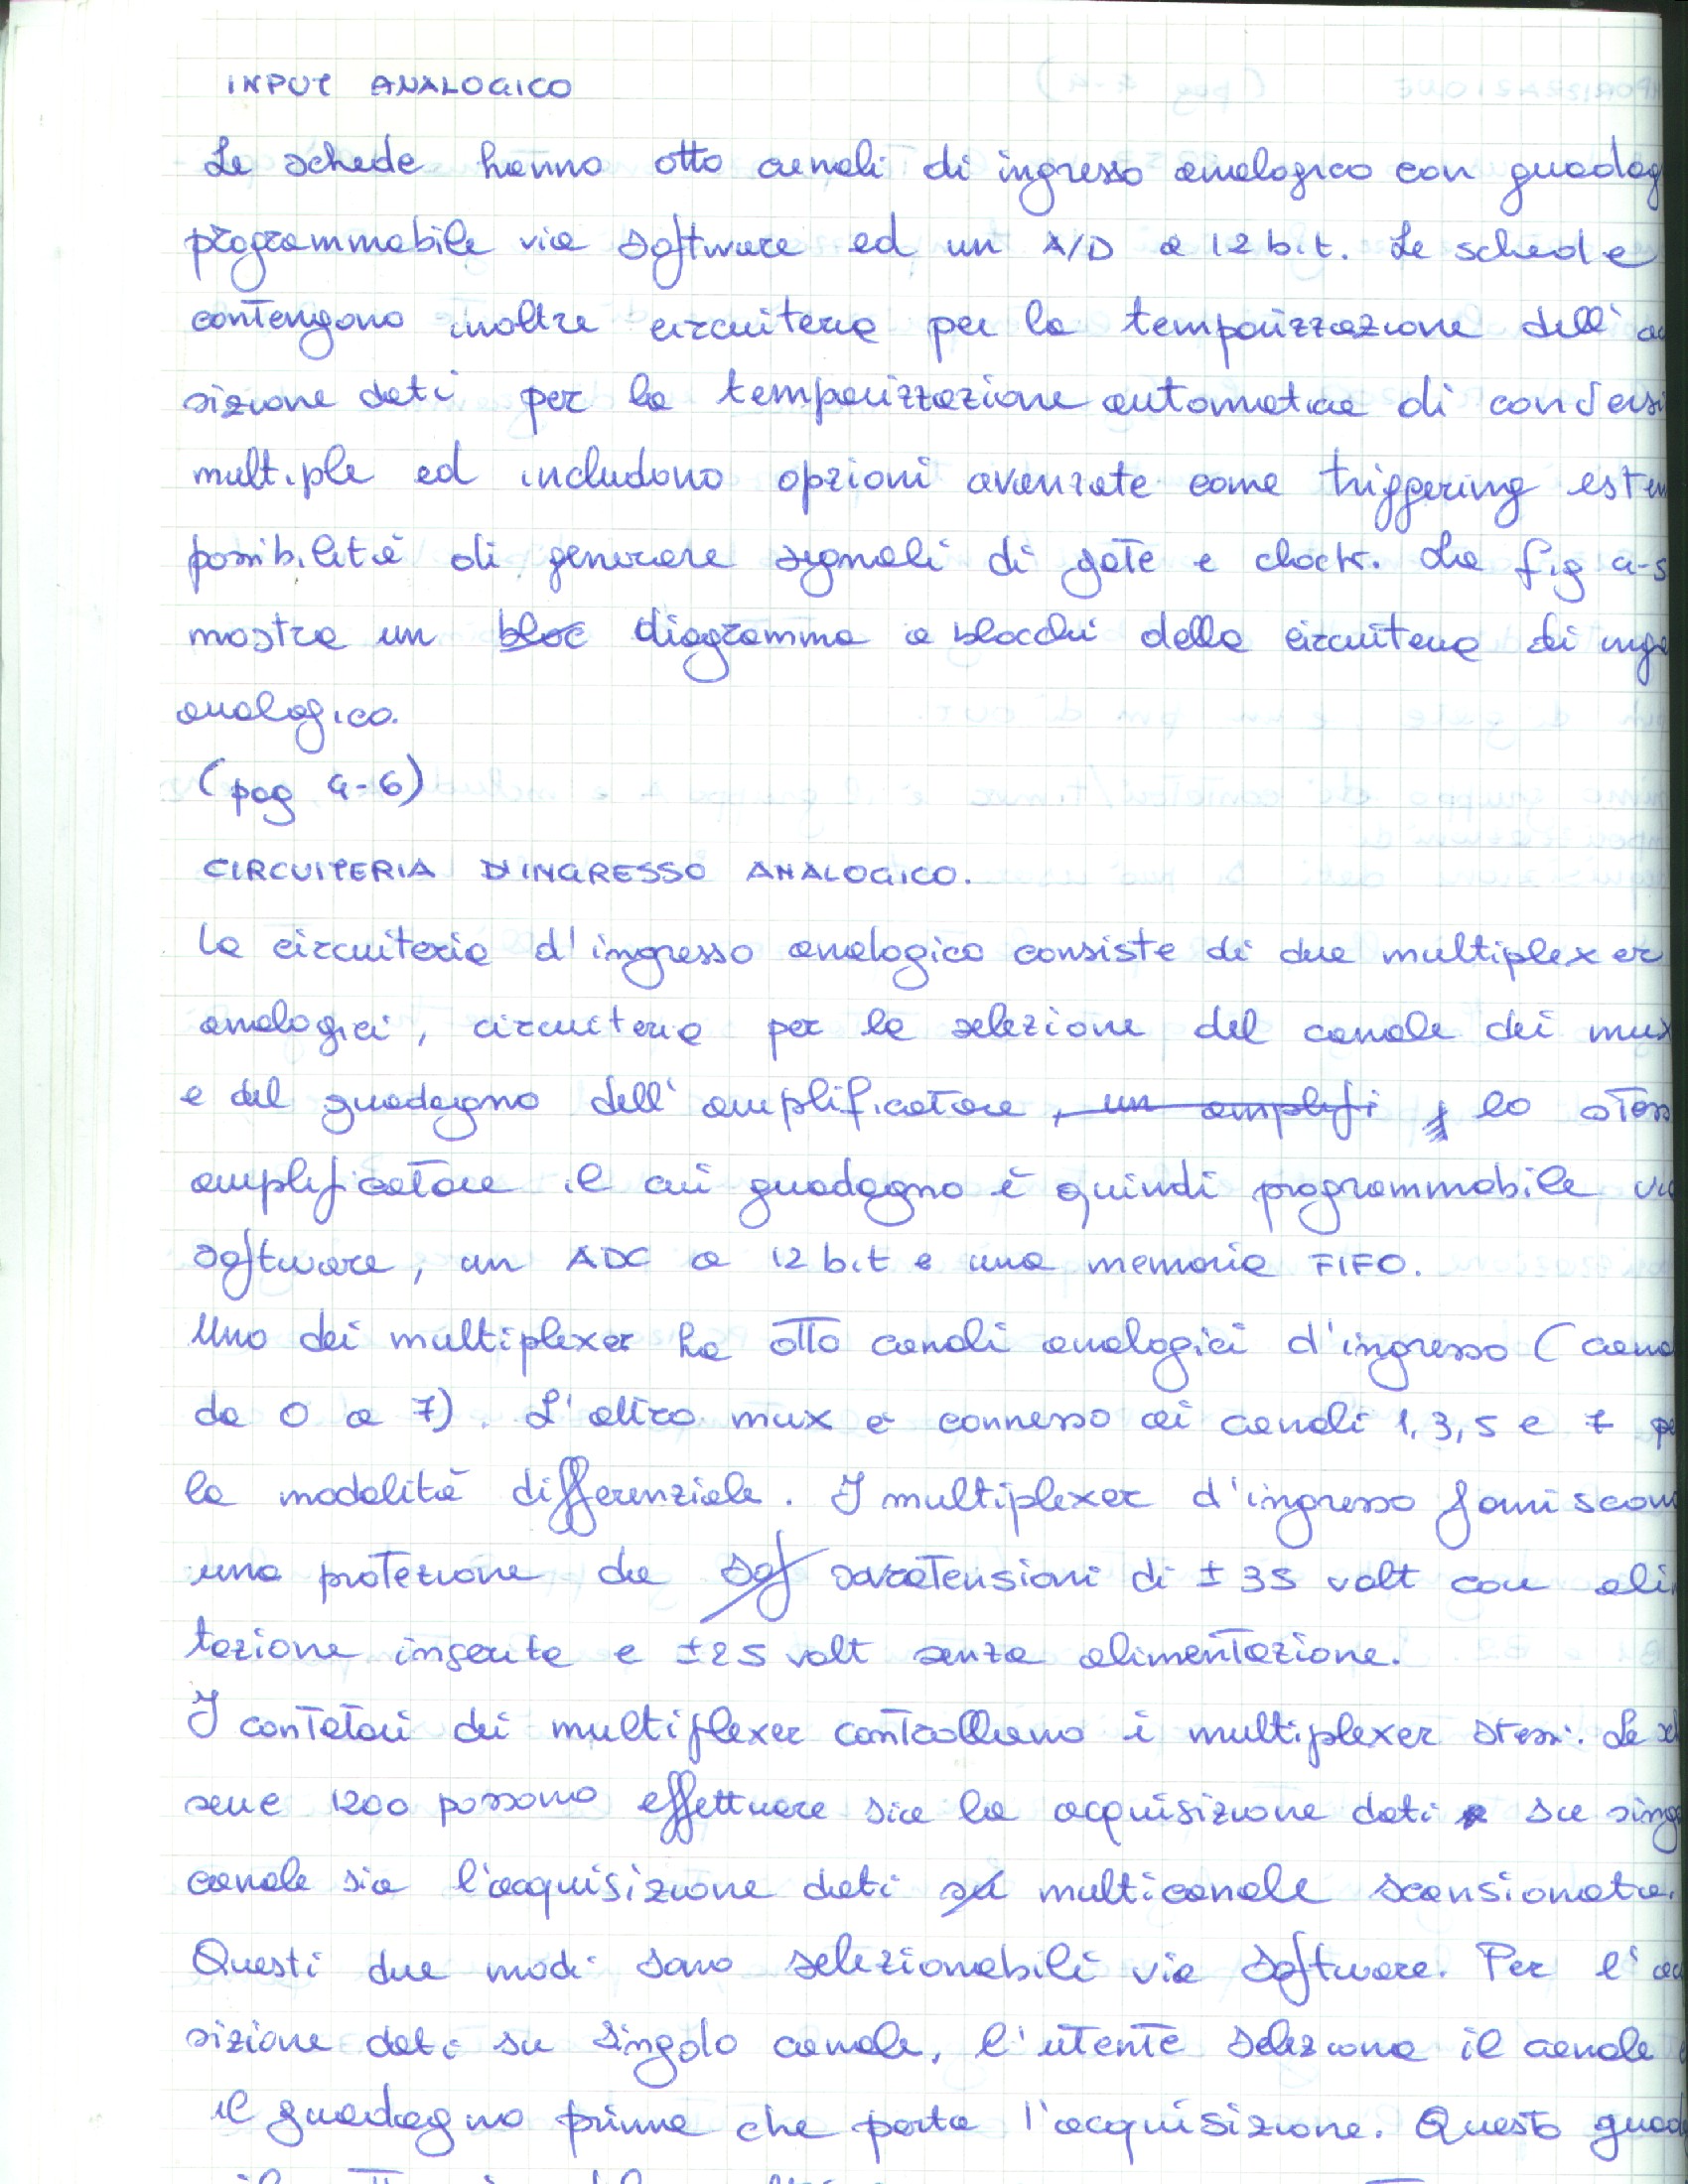 INPUT ANALOGICO
Le schede hanno otto canali di ingresso analogico con guadag
programmabile via software ed un A/D a 12 bit. Le schede
contengono inoltre circuiteria per la temporizzazione dell'a
sizione dati per la temporizzazione automatica di conversi
multiple ed includono opzioni avanzate come triggering ester
possibilità di generare segnali di gate e clock. La fig 4-5
mostra un bloc diagramma a blocchi della circuiteria di ingr
analogico.
(pag 4-6)
CIRCUITERIA D'INGRESSO ANALOGICO.
La circuiteria d'ingresso analogico consiste di due multiplexer
analogici, circuiteria per la selezione del canale dei mux
e del guadagno dell'amplificatore, un amplifi, lo stess
amplificatore il cui guadagno è quindi programmabile vi
software, un ADC a 12 bit e una memoria FIFO.
Uno dei multiplexer ha otto canali analogici d'ingresso (cana
da 0 a 7). L'altro mux è connesso ai canali 1, 3, 5 e 7 pe
la modalità differenziale. I multiplexer d'ingresso forniscon
una protezione da sof sovratensioni di ± 35 volt con ali
tazione inserita e ±25 volt senza alimentazione.
I contatori dei multiplexer controllano i multiplexer stessi. Le
serie 1200 possono effettuare sia la acquisizione dati su sing
canale sia l'acquisizione dati su multicanale scansionata.
Questi due modi sono selezionabili via software. Per l'a
sizione dati su singolo canale, l'utente seleziona il canale
il guadagno prima che parta l'acquisizione. Questo guad